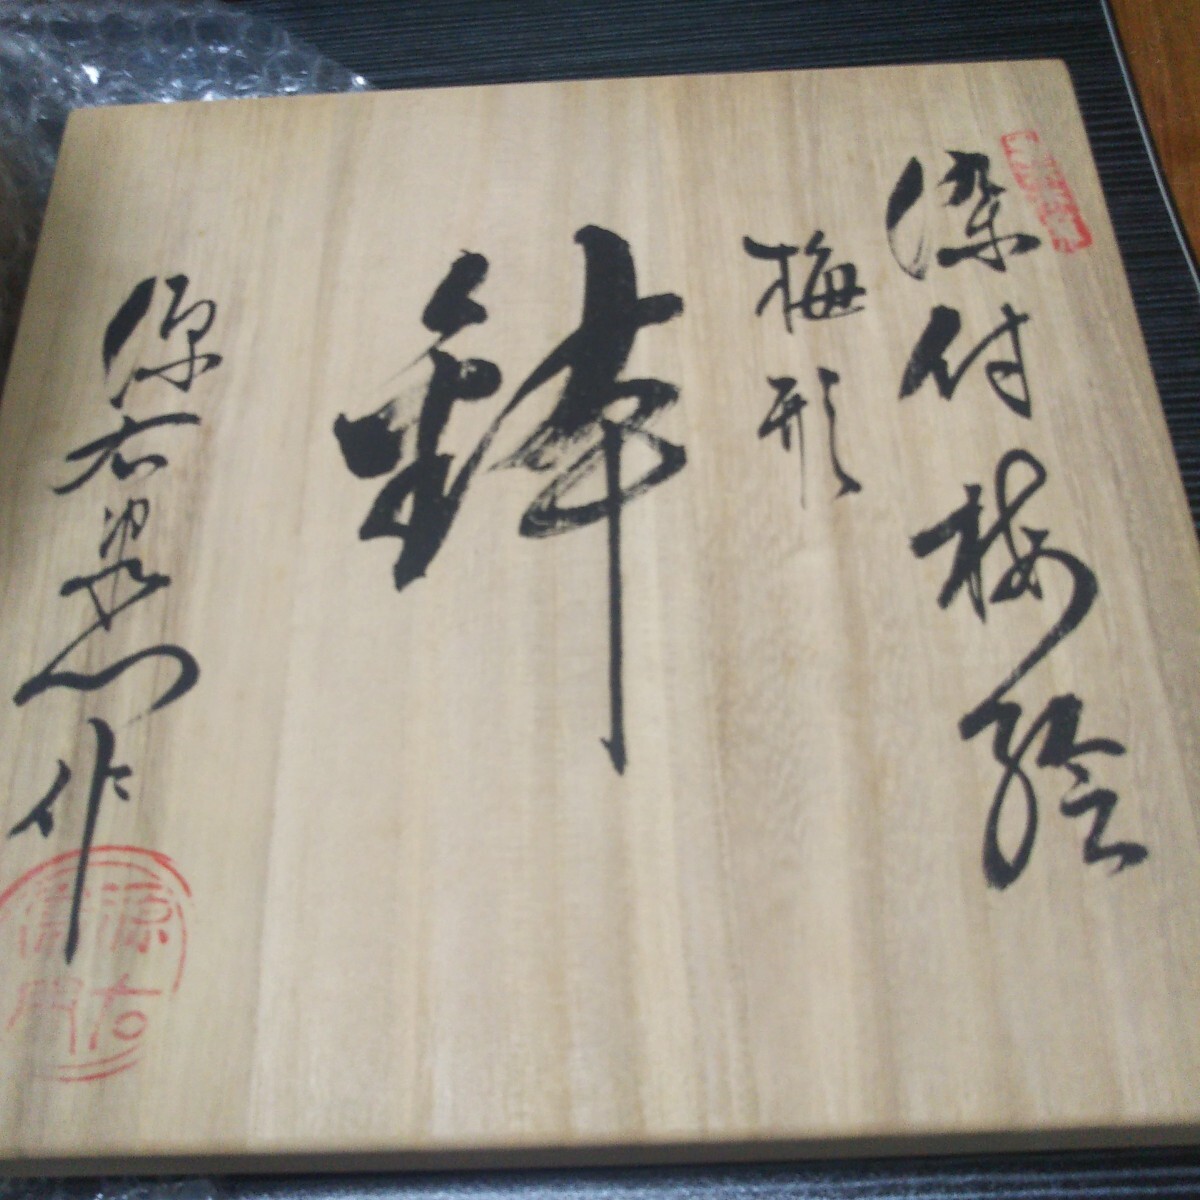 染付梅絵
梅形
鉢
源右衛門作
源右衛門